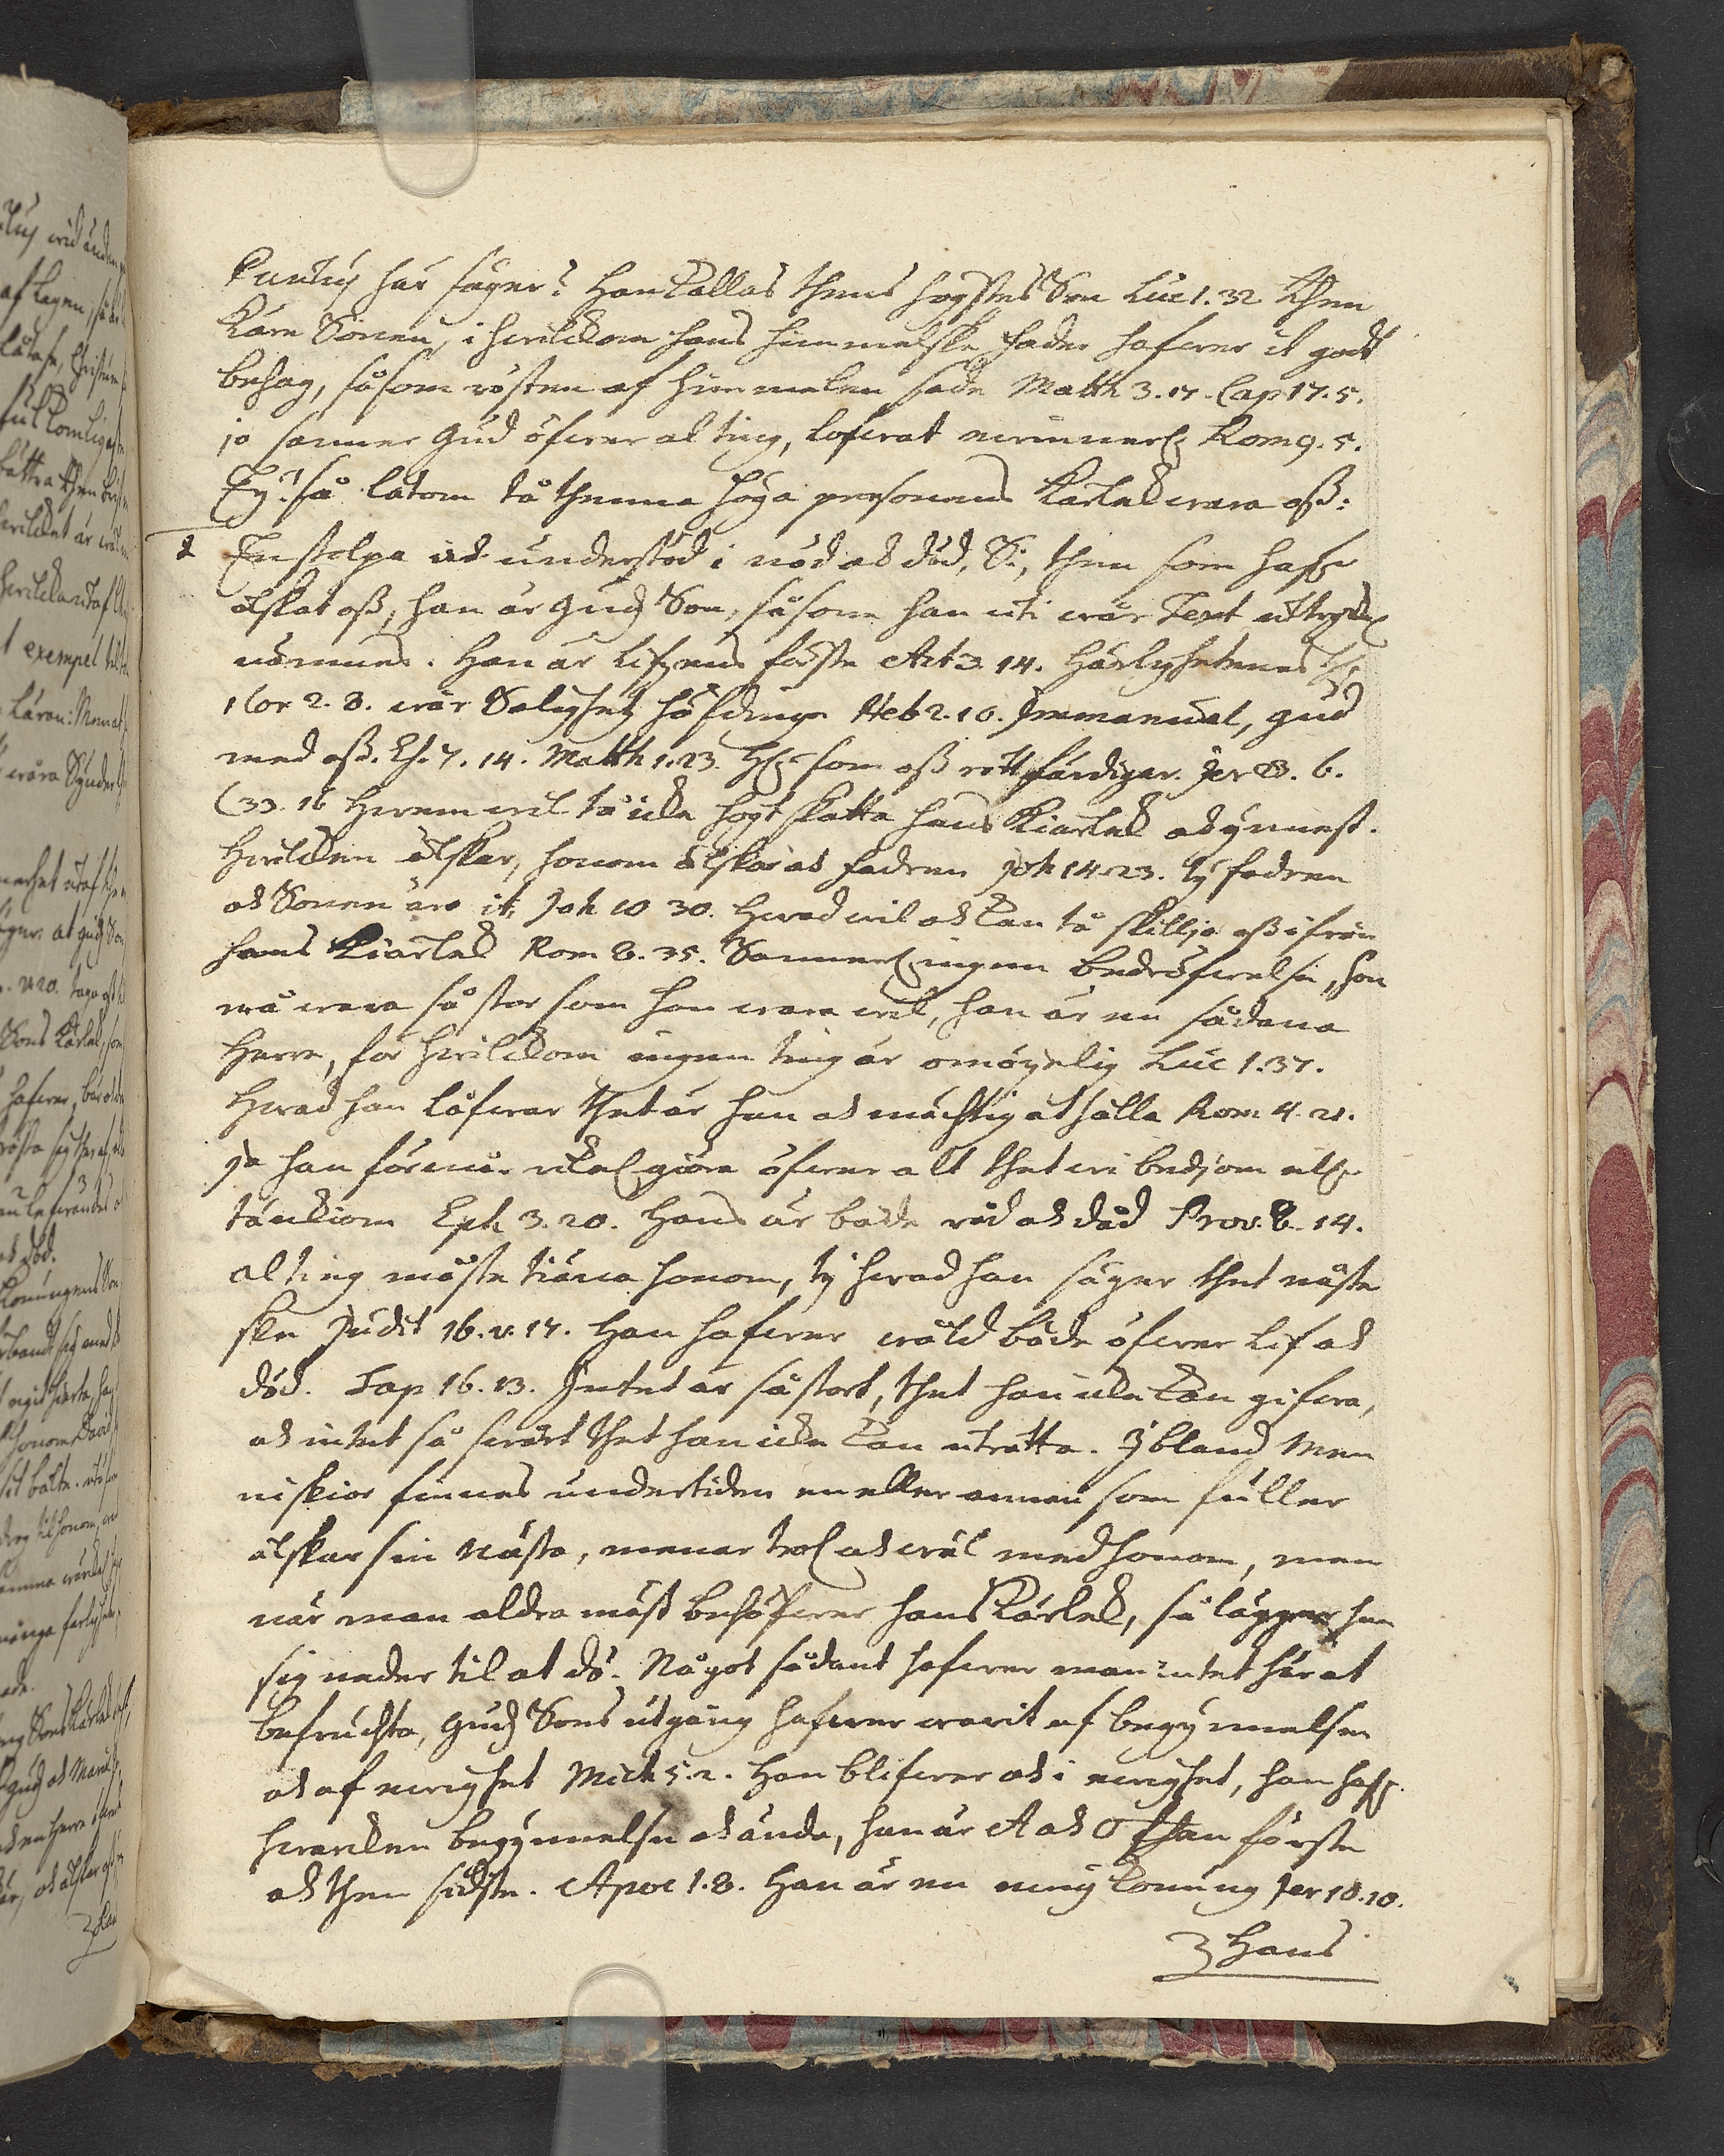 Paulus här säger? Han kallas thens högstes Son Luc 1. 32 then
käre Sonen, i hwilckom hans himmelske Fader hafwer it godt
behag, såsom rösten af himmelen sade Matth 3. 17. Cap 17. 5.
ja sanner Gud öfwer al ting, lofwat ewinnerl. Rom 9. 5.
Ey! så låtom tå thenna höga personens Kärlek wara oß:
2 En stolpa och understöd i nöd och död, Si, then som hafr
älskat oß, han är Gudz Son, såsom han uti wår Text uttryckl.
nämnes. Han är Lifzens förste Act 3. 14. Härlighetenes H:e
1 Cor 2. 8. wår Salighetz höfdinge Heb 2. 10. Immanuel, Gud
med oß. Es. 7. 14. Matth 1. 23. H:e som oß rättfärdigar. Jer 23. 6.
C 33. 16 Hwem wil tå icke högt skatta hans Kiärlek och ynnest.
Hwilcken älskar, honom älskar och Fadren Joh 14. 23. ty Fadren
och Sonen äro it, Joh 10 30. Hwad wil och kan tå skillja oß ifrån
hans Kiärlek Rom 8. 35. Sannerl. ingen bedröfwelse, hon
må wara så stor som hon wara wil, han är en sådana
Herre, för hwilckom ingen ting är omöyelig Luc 1. 37.
Hwad han låfwar thet är han och mächtig at hålla Rom 4. 21.
Ja han förmår ykel. giöra öfwer alt thet wi bedjom eller
tänckiom Eph 3. 20. Hans är både råd och dåd Prov. 8. 14.
al ting måste tiäna honom, ty hwad han säger thet måste
ske Judit 16. v. 17. Han hafwer wåld både öfwer lif och
död. Sap 16. 13. Intet är så stort, thet han icke kan gifwa,
och intet så swårt thet han icke kan uträtta. Ibland Men
niskior finnes undertiden en eller annan som fuller
älskar sin Nästa, menar trol. och wäl med honom, men
när man aldra mäst behöfwer hans Kärlek, så lägger han
sig neder til at dö. Något sådant hafwer man intet här at
befruchta, Gudz Sons utgång hafwer warit af begynnelsen
och af ewighet Mich 5. 2. Han blifwer och i ewighet, han hafr
hwarcken begynnelse och ända, han är A och O then förste
och then sidste. Apoc 1. 8. Han är en ewig Konung Jer 10. 10.
Hans